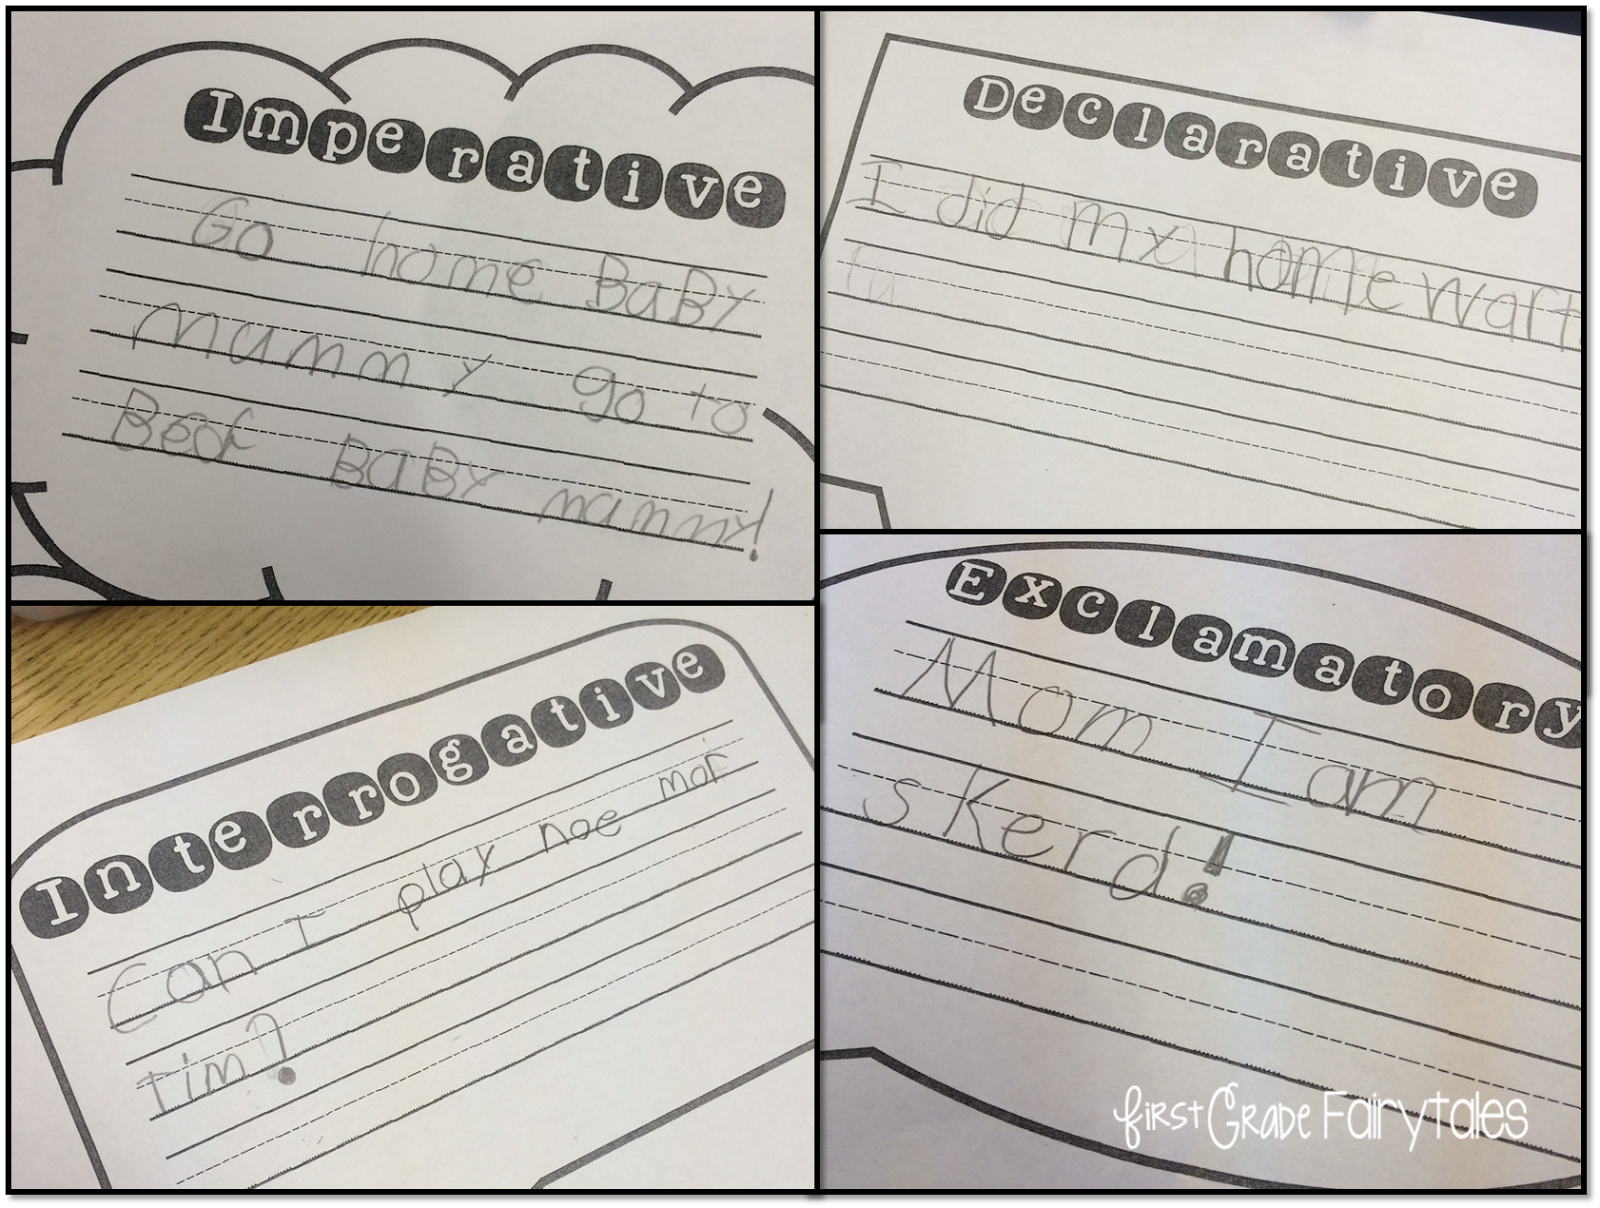 Imperative
Go home BaBy
mummy go to
Bed BaBy mummy!
Declarative
I did my homewart
Interrogative
Can I play noe mor
tim?
Exclamatory
Mom I am
sKerd!
First Grade Fairytales